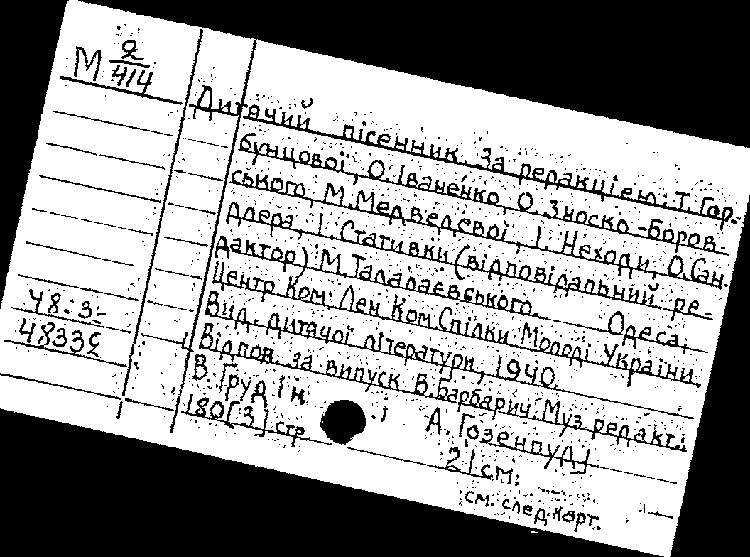 М 2/414
Дитячий пісенник. За редакцією: Т. Гор-
бунцової, О. Іваненко, О. Зноско-Боров-
ського, М. Медведєвої, І. Неходи, О. Сан-
длера, І. Стативки (відповідальний ре-
дактор) М. Талалаєвського. Одеса,
Центр. Ком. Лен. Ком. Спілки Молоді України.
Вид. дитячої літератури, 1940.
[Відпов. за випуск В. Барбарич. Муз. редакт.:
В. Грудін. А. Гозенпуд]
180[3] стр. 21 см.
48.з-
4833с
см. след. карт.